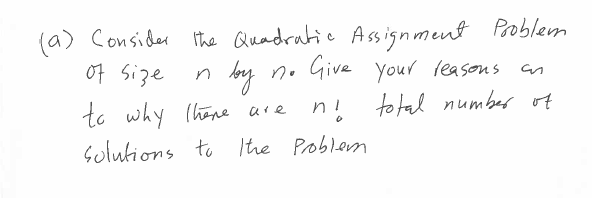 (a) Consider the Quadratic Assignment Problem
of size n by n. Give your reasons an
to why there are n! total number of
solutions to the Problem